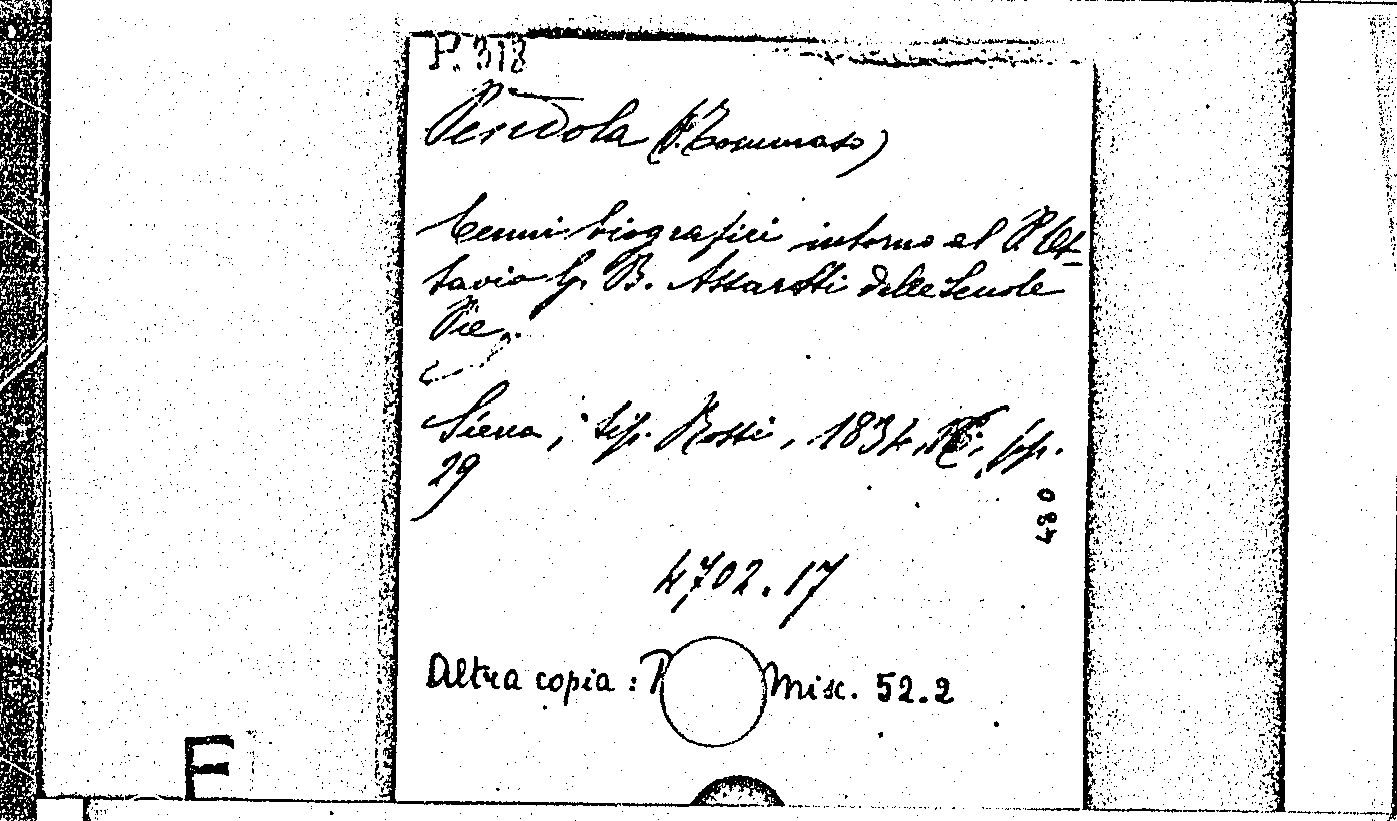 P. 318
Pendola (P. Tommaso)
Cenni biografici intorno al P. Ot-
tavio G. B. Assarotti delle Scuole
Pie.
Siena, tip. Rossi, 1834, pp.
29
480
4702.17
Altra copia: Misc. 52.2
F